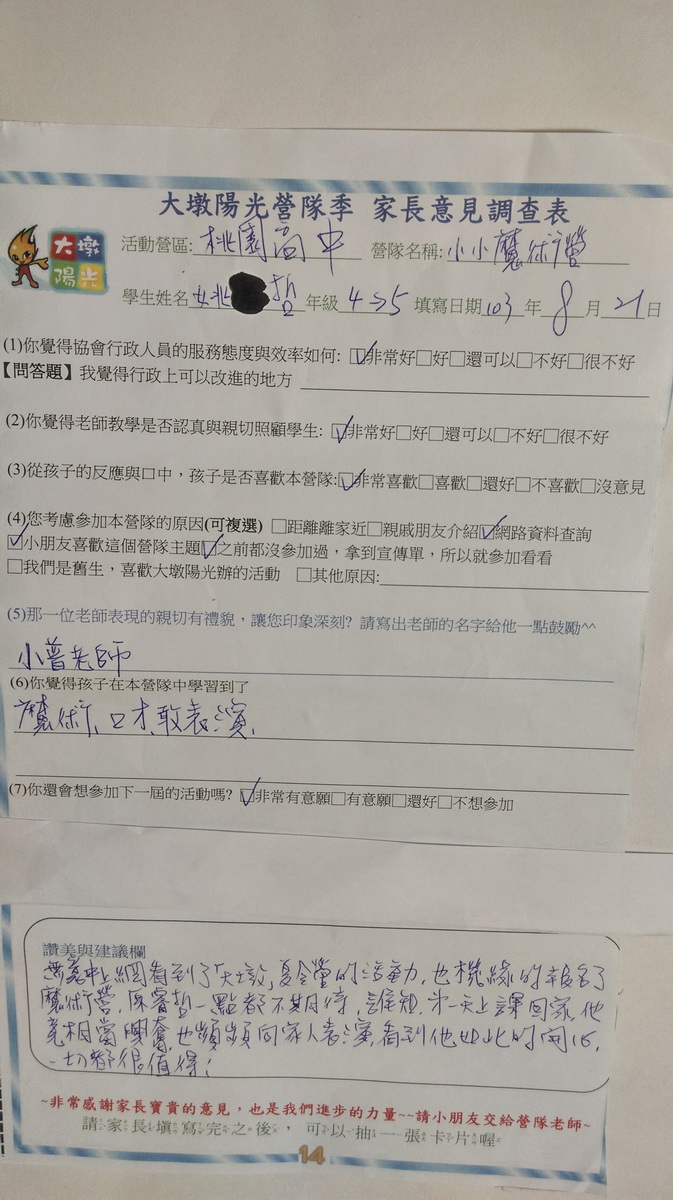 大墩陽光營隊季 家長意見調查表
大墩
陽光
活動營區: 桃園高中 營隊名稱: 小小魔術營
學生姓名 哲 年級 4→5 填寫日期 103 年 8 月 21 日
(1)你覺得協會行政人員的服務態度與效率如何: ☑非常好□好□還可以□不好□很不好
【問答題】我覺得行政上可以改進的地方
(2)你覺得老師教學是否認真與親切照顧學生: ☑非常好□好□還可以□不好□很不好
(3)從孩子的反應與口中，孩子是否喜歡本營隊:☑非常喜歡□喜歡□還好□不喜歡□沒意見
(4)您考慮參加本營隊的原因(可複選) □距離離家近□親戚朋友介紹☑網路資料查詢
☑小朋友喜歡這個營隊主題☑之前都沒參加過，拿到宣傳單，所以就參加看看
□我們是舊生，喜歡大墩陽光辦的活動 □其他原因:
(5)那一位老師表現的親切有禮貌，讓您印象深刻? 請寫出老師的名字給他一點鼓勵^^
小普老師
(6)你覺得孩子在本營隊中學習到了
魔術、口才、敢表演、
(7)你還會想參加下一屆的活動嗎? ☑非常有意願□有意願□還好□不想參加
讚美與建議欄
無意中上網看到了「大墩」夏令營的活動，也機緣的報名了
魔術營，陳睿哲一點都不期待，誰知，第一天上課回家，他
竟相當興奮，也頻頻向家人表演，看到他如此的開心，
一切都很值得！
~非常感謝家長寶貴的意見，也是我們進步的力量~~請小朋友交給營隊老師~
請家長填寫完之後，可以抽一張卡片喔
14